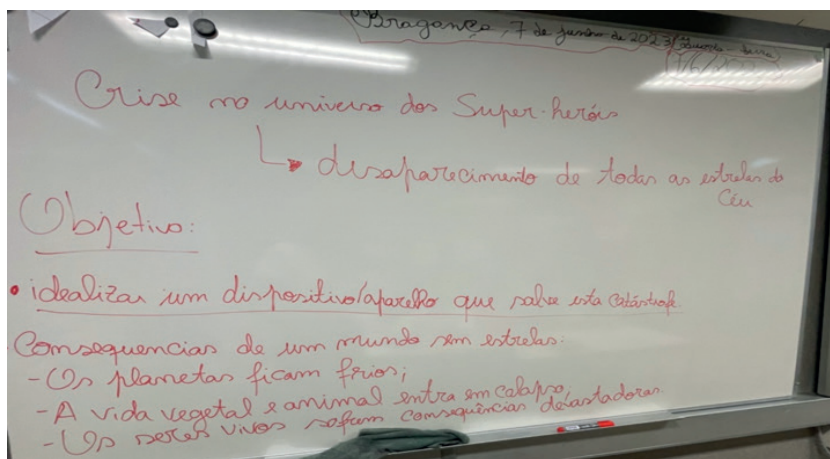 Bragança, 7 de junho de 2023 (Quarta-feira)
Crise no universo dos Super-heróis
desaparecimento de todas as estrelas do
Céu
Objetivo:
• idealizar um dispositivo/aparelho que salve esta catástrofe.
Consequencias de um mundo sem estrelas:
- Os planetas ficam frios;
- A vida vegetal e animal entra em colapso;
- Os seres vivos sofrem consequências devastadoras.